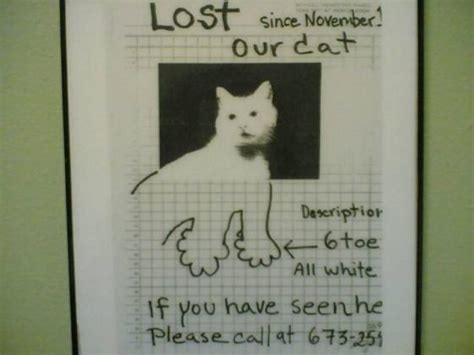 LOST since November!
our cat
Description
6 toe
All white
If you have seen he
Please call at 673-259